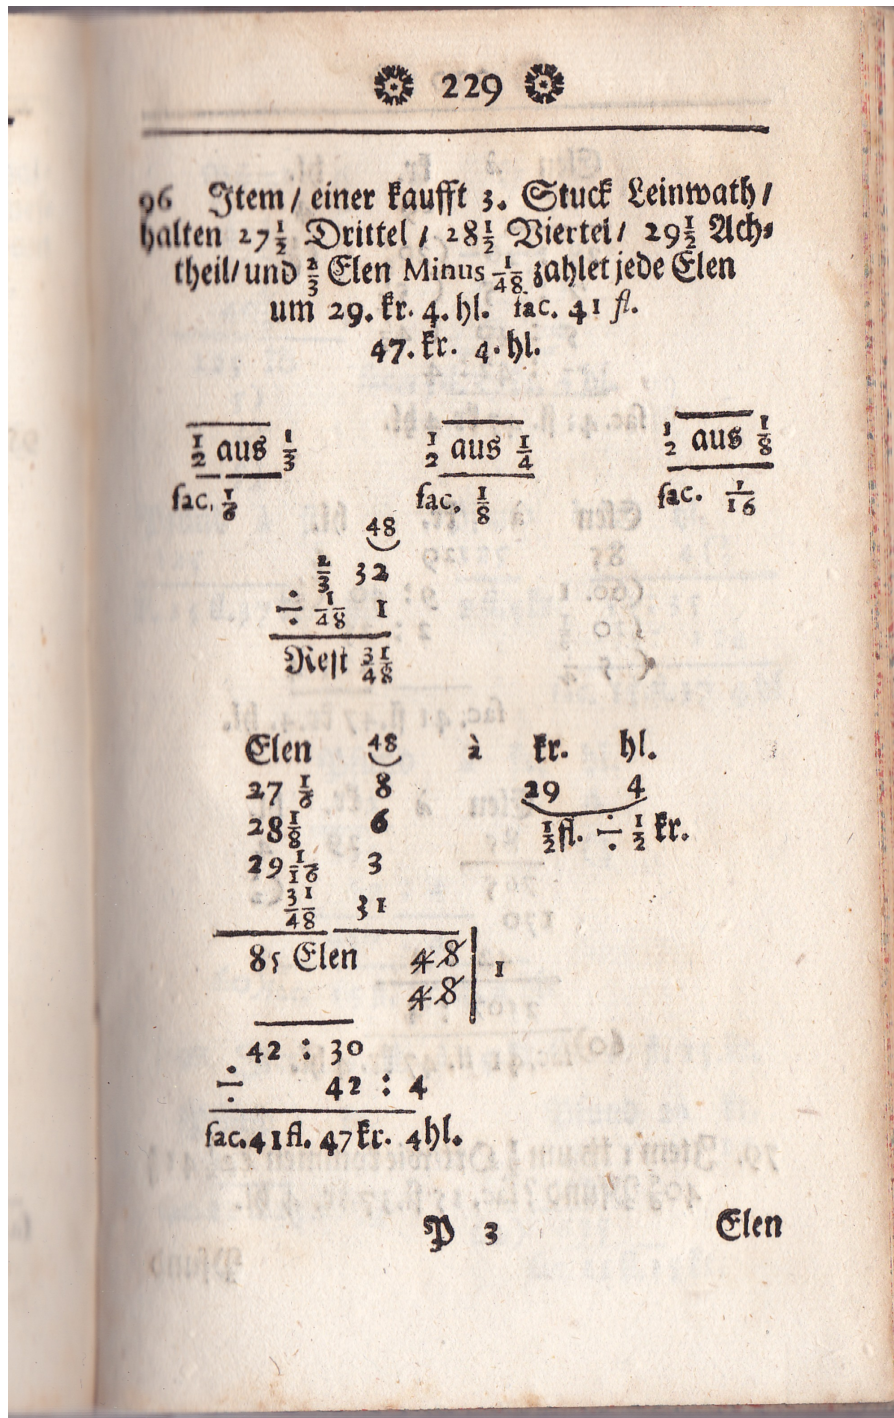 229
96 Item / einer kaufft 3. Stuck Leinwath /
halten 27 1/2 Drittel / 28 1/2 Viertel / 29 1/2 Ach-
theil / und 2/3 Elen Minus 1/48 zahlet jede Elen
um 29. kr. 4. hl. fac. 41 fl.
47. kr. 4. hl.
1/2 aus 1/3 1/2 aus 1/4 1/2 aus 1/8
fac. 1/6 fac. 1/8 fac. 1/16
48
2/3 32
÷ 1/48 1
Rest 31/48
Elen 48 à kr. hl.
27 1/6 8 29 4
28 1/8 6 1/2 fl. ÷ 1/2 kr.
29 1/16 3
31/48 31
85 Elen 48 | 1
48
42 : 30
÷ 42 : 4
fac. 41 fl. 47 kr. 4 hl.
P 3 Elen